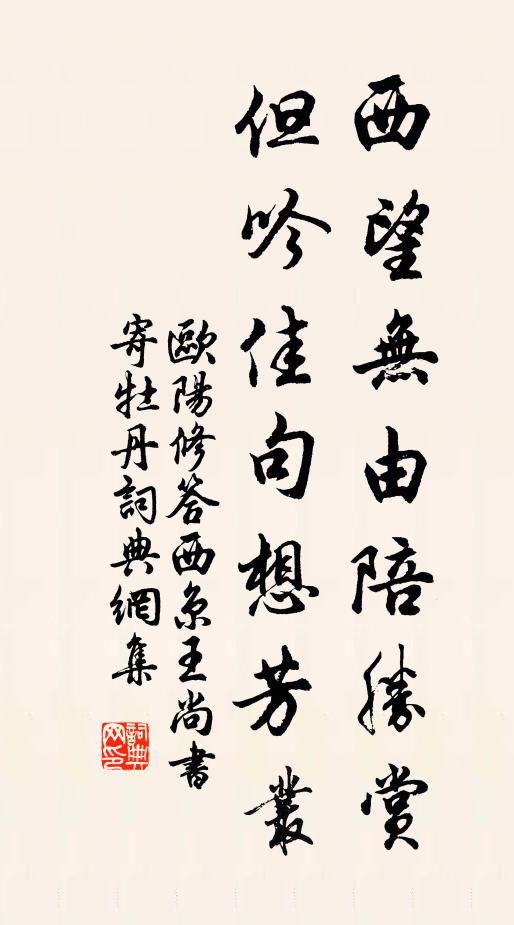 西望無由陪勝賞
但吟佳句想芳叢
歐陽修答西京王尚書
寄牡丹詞典網集
詞典
网印